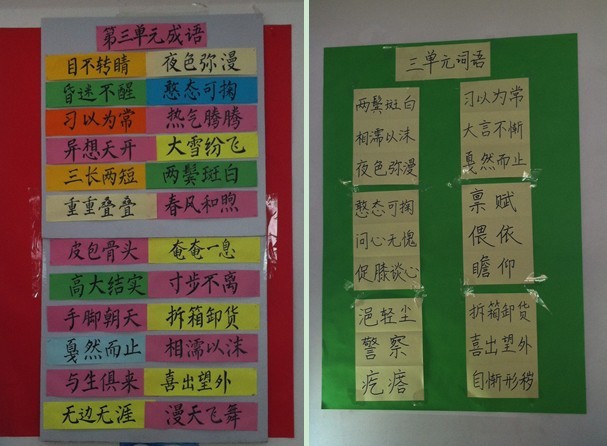 第三单元成语
目不转睛 夜色弥漫
昏迷不醒 憨态可掬
习以为常 热气腾腾
异想天开 大雪纷飞
三长两短 两鬓斑白
重重叠叠 春风和煦
皮包骨头 奄奄一息
高大结实 寸步不离
手脚朝天 拆箱卸货
戛然而止 相濡以沫
与生俱来 喜出望外
无边无涯 漫天飞舞
三单元词语
两鬓斑白
相濡以沫
夜色弥漫
习以为常
大言不惭
戛然而止
憨态可掬
问心无愧
促膝谈心
禀赋
偎依
瞻仰
浥轻尘
警察
疙瘩
拆箱卸货
喜出望外
自惭形秽